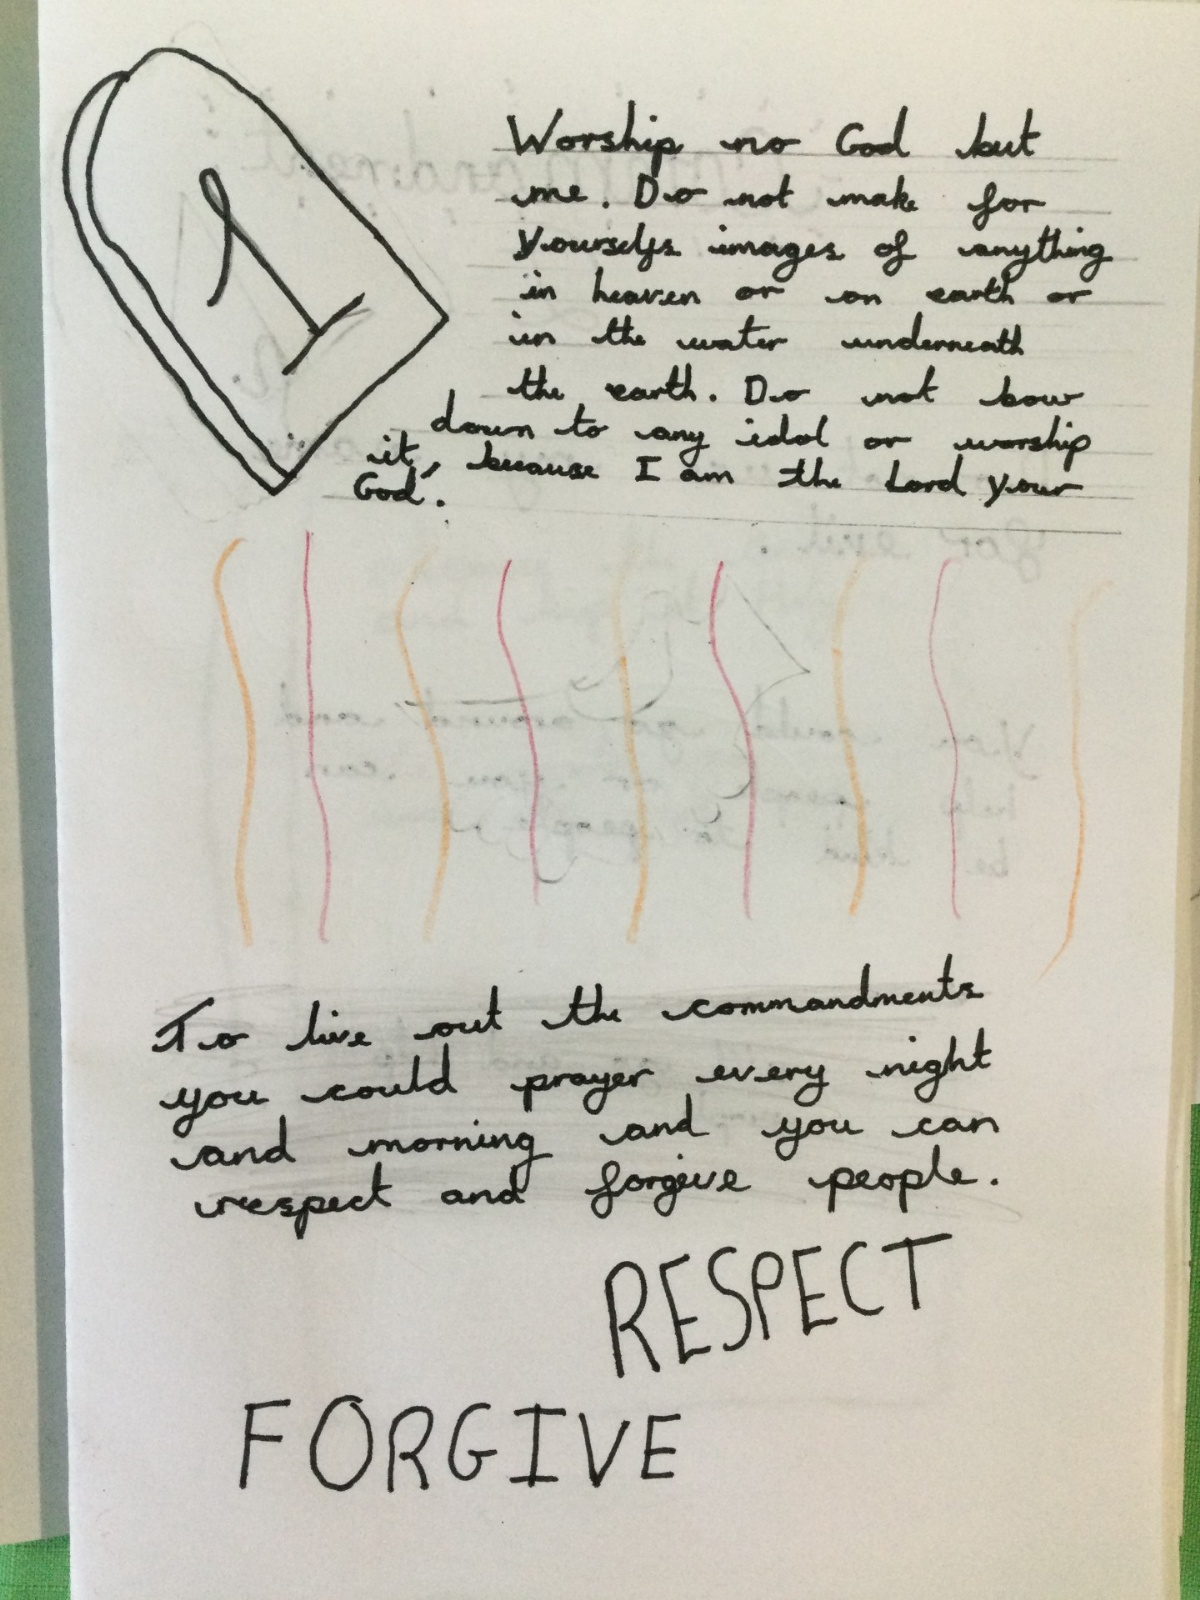 1
Worship no God but
me. Do not make for
yourselfs images of anything
in heaven or on earth or
in the water underneath
the earth. Do not bow
down to any idol or worship
it, because I am the Lord your
God.
To live out the commandments
you could prayer every night
and morning and you can
respect and forgive people.
RESPECT
FORGIVE